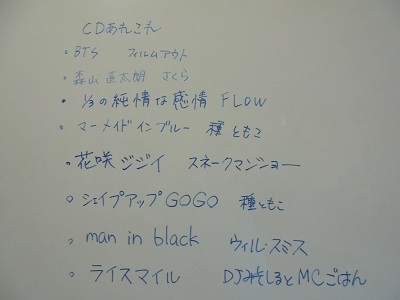 CDあれこれ
・BTS フィルムアウト
・森山直太朗 さくら
・1/3の純情な感情 FLOW
・マーメイドインブルー 種ともこ
・花咲ジジイ スネークマンショー
・シェイプアップGOGO 種ともこ
・man in black ウィル・スミス
・ライスマイル DJみそしるとMCごはん